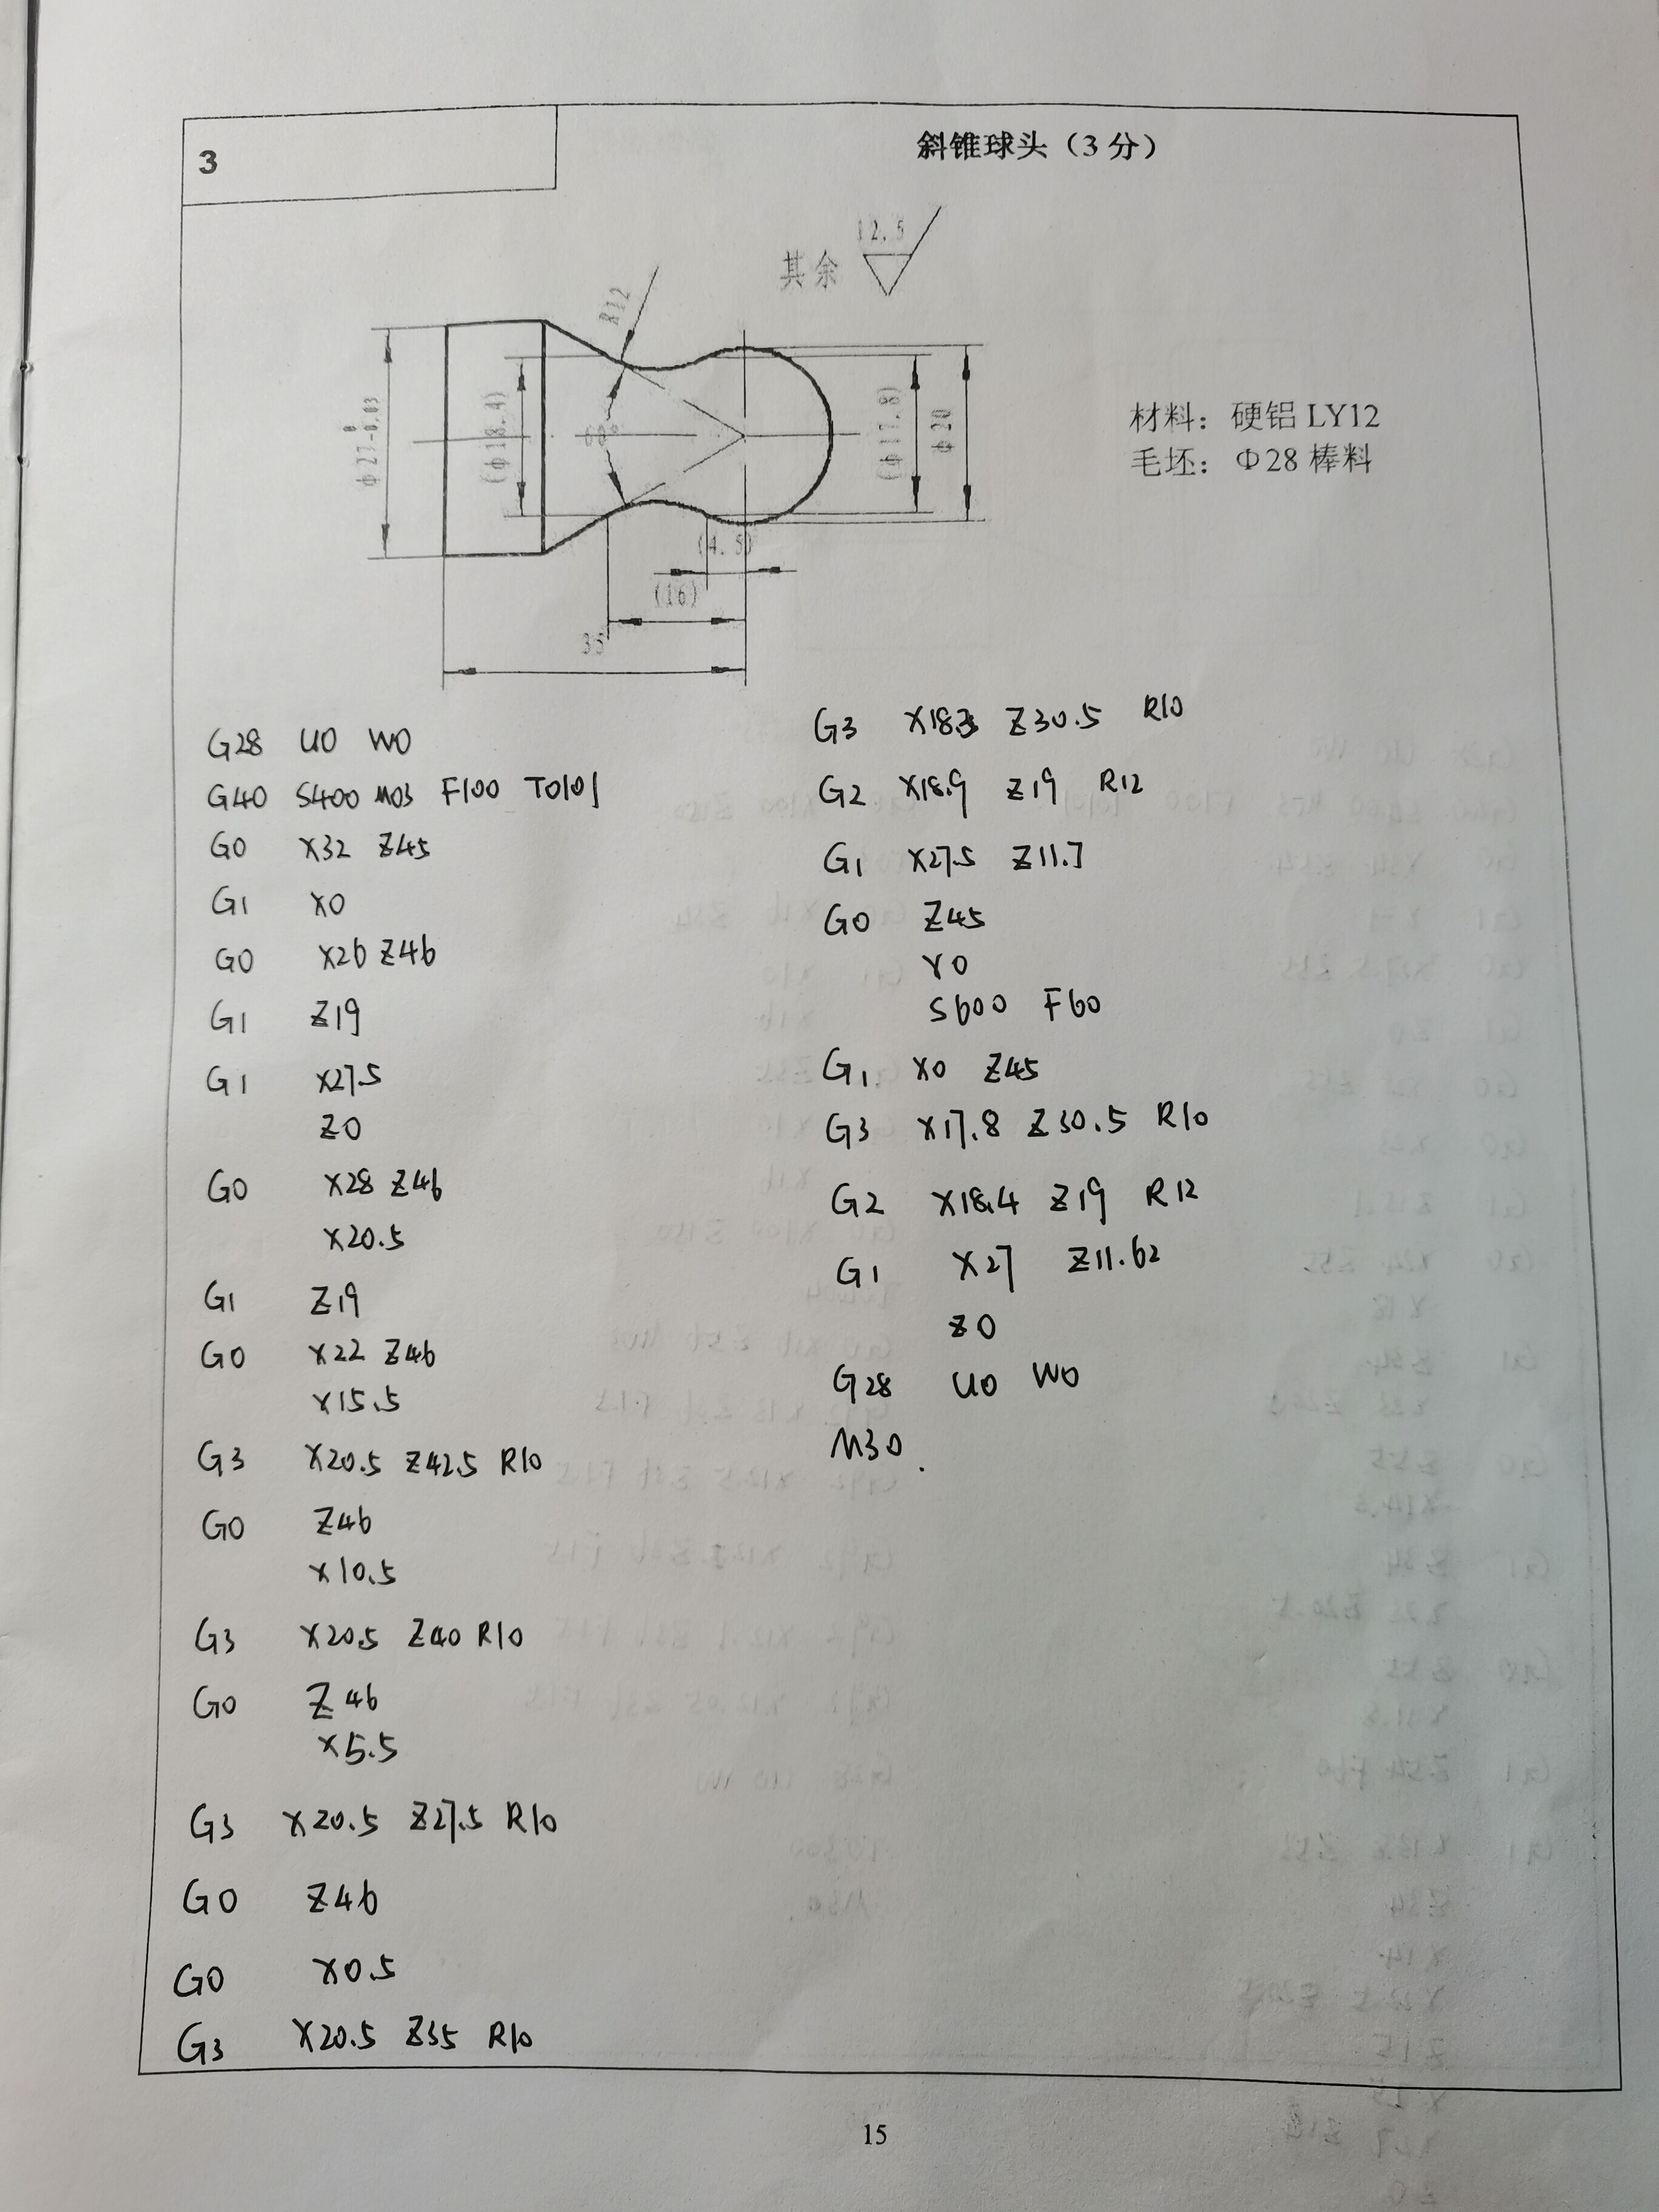 3
斜锥球头（3 分）
其余
12.5
R12
Φ27 0 -0.03
(Φ18.4)
60°
(Φ17.8)
Φ20
(4.5)
(16)
35
材料：硬铝 LY12
毛坯：Φ28 棒料
G28 U0 W0
G40 S400 M03 F100 T0101
G0 X32 Z45
G1 X0
G0 X26 Z46
G1 Z19
G1 X27.5
Z0
G0 X28 Z46
X20.5
G1 Z19
G0 X22 Z46
X15.5
G3 X20.5 Z42.5 R10
G0 Z46
X10.5
G3 X20.5 Z40 R10
G0 Z46
X5.5
G3 X20.5 Z27.5 R10
G0 Z46
G0 X0.5
G3 X20.5 Z35 R10
G3 Z30.5 R10
G2 X18.9 Z19 R12
G1 X27.5 Z11.7
G0 Z45
X0
S600 F60
G1 X0 Z45
G3 X17.8 Z30.5 R10
G2 X18.4 Z19 R12
G1 X27 Z11.62
Z0
G28 U0 W0
M30.
15